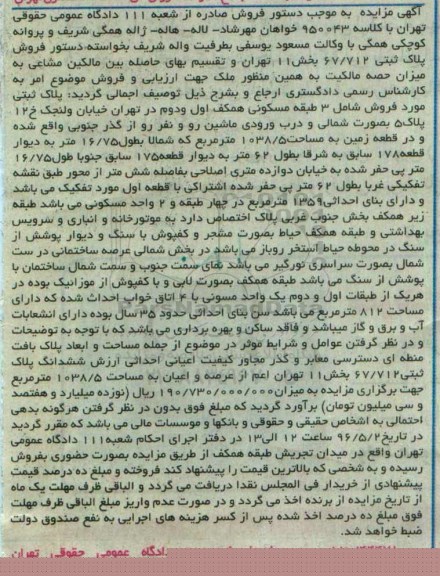 آگهی مزایده به موجب دستور فروش صادره از شعبه ۱۱۱ دادگاه عمومی حقوقی
تهران با کلاسه ۹۵۰۰۴۳ خواهان مهرشاد- لاله- هاله- ژاله همگی شریف و پروانه
کوچکی همگی با وکالت مسعود یوسفی بطرفیت واله شریف بخواسته دستور فروش
پلاک ثبتی ۶۷/۷۱۲ بخش۱۱ تهران و تقسیم بهای حاصله بین مالکین مشاعی به
میزان حصه مالکیت به همین منظور ملک جهت ارزیابی و فروش موضوع امر به
کارشناس رسمی دادگستری ارجاع و بشرح ذیل توصیف اجمالی گردید: پلاک ثبتی
مورد فروش شامل ۳ طبقه مسکونی همکف اول ودوم در تهران خیابان ولنجک خ۱۲
پلاک۵ بصورت شمالی و درب ورودی ماشین رو و نفر رو از گذر جنوبی واقع شده
و در قطعه زمین به مساحت۱۰۳۸/۵ مترمربع که شمالا بطول۱۶/۷۵ متر به دیوار
قطعه۱۷۸ سابق به شرقا بطول ۶۲ متر به دیوار قطعه۱۷۵ سابق جنوبا طول۱۶/۷۵
متر پی حفر شده به خیابان دوازده متری اصلاحی بفاصله شش متر از محور طبق نقشه
تفکیکی غربا بطول ۶۲ متر پی حفر شده اشتراکی با قطعه اول مورد تفکیک می باشد
و دارای بنای احداثی۱۳۵۹ مترمربع در چهار طبقه و ۲ واحد مسکونی می باشد طبقه
زیر همکف بخش جنوب غربی پلاک اختصاص دارد به موتورخانه و انباری و سرویس
بهداشتی و طبقه همکف حیاط بصورت مشجر و کفپوش با سنگ و دیوار پوشش از
سنگ در محوطه حیاط استخر روباز می باشد در بخش شمالی عرصه ساختمانی در ست
شمال بصورت سراسری نورگیر می باشد نمای سمت جنوب و سمت شمال ساختمان با
پوشش از سنگ می باشد طبقه همکف بصورت لابی و با کفپوش از موزانیک بوده در
هریک از طبقات اول و دوم یک واحد مسونی با ۴ اتاق خواب احداث شده که دارای
مساحت ۸۱۲ مترمربع می باشد سن بنای احداثی حدود ۳۵ سال بوده دارای انشعابات
آب و برق و گاز میباشد و فاقد ساکن و بهره برداری می باشد که با توجه به توضیحات
و در نظر گرفتن عوامل و شرایط موثر در موضوع از جمله مساحت و ابعاد پلاک بافت
منطه ای دسترسی معابر و گذر مجاور کیفیت اعیانی احداثی ارزش ششدانگ پلاک
ثبتی۶۷/۷۱۲ بخش۱۱ تهران اعم از عرصه و اعیان به مساحت ۱۰۳۸/۵ مترمربع
جهت برگزاری مزایده به میزان۱۹۰/۷۳۰/۰۰۰/۰۰۰ ریال (نوزده میلیارد و هفتصد
و سی میلیون تومان) برآورد گردید که مبلغ فوق بدون در نظر گرفتن هرگونه بدهی
احتمالی به اشخاص حقیقی و حقوقی و بانکها و موسسات مالی می باشد که مقرر گردید
در تاریخ۹۶/۵/۲ ساعت ۱۲ الی۱۳ در دفتر اجرای احکام شعبه۱۱۱ دادگاه عمومی
تهران واقع در میدان تجریش طبقه همکف از طریق مزایده بصورت حضوری بفروش
رسیده و به شخصی که بالاترین قیمت را پیشنهاد کند فروخته و مبلغ ده درصد قیمت
پیشنهادی از خریدار فی المجلس نقدا دریافت می گردد و الباقی ظرف مهلت یک ماه
از تاریخ مزایده از برنده اخذ می گردد و در صورت عدم واریز مبلغ الباقی ظرف مهلت
فوق مبلغ ده درصد اخذ شده پس از کسر هزینه های اجرایی به نفع صندوق دولت
ضبط خواهد شد.
دادگاه عمومی حقوقی تهران